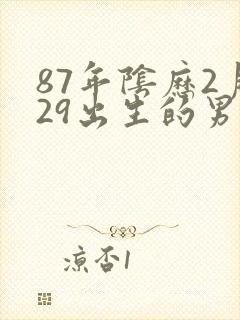 87年陰歷2月
29出生的男
涼否1